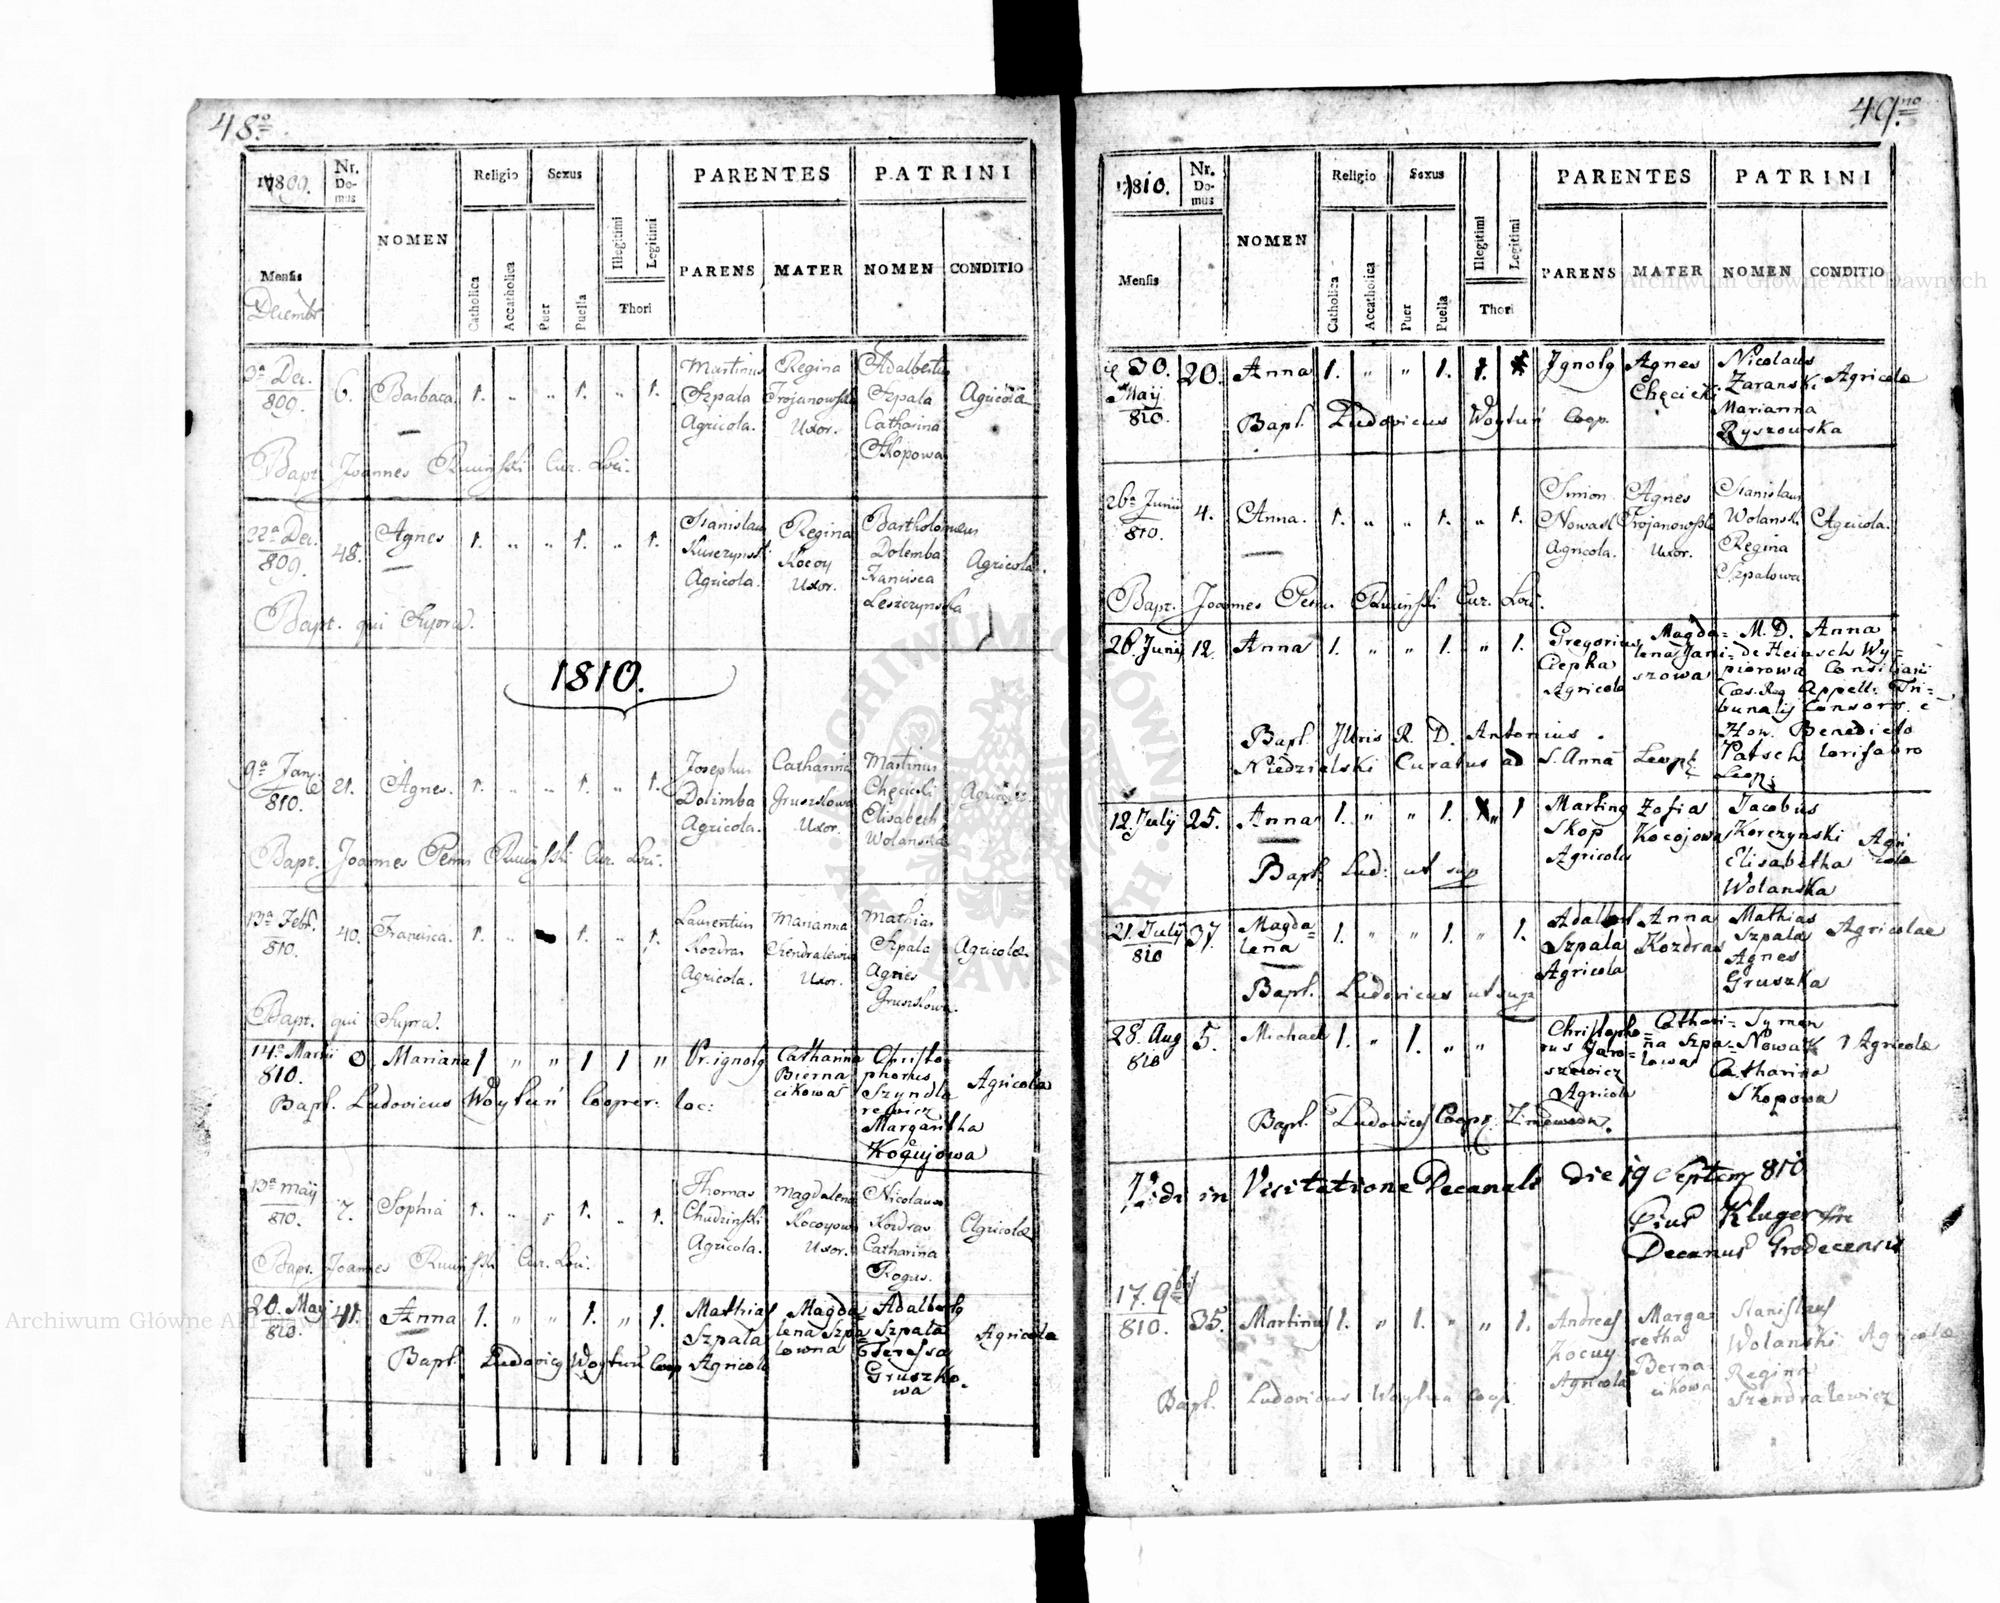 48o.
1809.
Nr. Do-mus
NOMEN
Religio
Sexus
PARENTES
PATRINI
Mensis
Decembr
Catholica
Accatholica
Puer
Puella
Illegitimi
Legitimi
Thori
PARENS
MATER
NOMEN
CONDITIO
3a Dec. 809. 6. Barbara 1. " " 1. " 1. Martinus Szpala Agricola. Regina Trojanowska Uxor. Adalbertus Szpala Catharina Skopowa Agricola
Bapt. Joannes Cur. Loci.
22a Dec. 809. 48. Agnes 1. " " 1. " 1. Stanislaus Agricola. Regina Kocoy Uxor. Bartholomeus Dolemba Francisca Leszczynska Agricola.
Bapt. qui Supra.
1810.
9a Jan. 810. 21. Agnes. 1. " " 1. " 1. Josephus Dolimba Agricola. Catharina Gruszkowa Uxor. Martinus Chęcicki Elisabeth Wolanska
Bapt. Joannes Cur. Loci.
13a Febr. 810. 40. Francisca. 1. " 1. " 1. Laurentius Kozdras Agricola. Marianna Uxor. Mathias Szpala Agnes Gruszkowa. Agricolae
Bapt. qui Supra.
14a Martii 810. 0. Mariana 1 " " 1 1 " Pr. ignoty Catharina Biernacikowa Christophorus Szyndlarewicz Margaritha Kogujowa Agricola
Bapt. Ludovicus Woytuń Cooper: loc:
13a May 810. 7. Sophia 1. " " 1. " 1. Thomas Chudzinski Agricola. Magdalena Kocoyowa Uxor. Nicolaus Kozdras Catharina Rogus. Agricolae
Bapt. Joannes Cur. Loci.
20. May 810. 41. Anna 1. " " 1. " 1. Mathias Szpala Agricola Magdalena Szpalowna Adalbertg Szpala Teressa Gruszkowa. Agricola
Bapt. Ludovicg Woytuń Coop
49no.
1810.
Nr. Do-mus
NOMEN
Religio
Sexus
PARENTES
PATRINI
Mensis
Catholica
Accatholica
Puer
Puella
Illegitimi
Legitimi
Thori
PARENS
MATER
NOMEN
CONDITIO
30. May 810. 20. Anna 1. " " 1. 1. Ignotg Agnes Chęcicki Nicolaus Zaranski Marianna Ryszowska Agricolae
Bapt. Ludovicus Woytuń Coop.
26a Junii 810. 4. Anna. 1. " " 1. " 1. Simon Nowak Agricola. Agnes Trojanowska Uxor. Stanislaus Wolanski Regina Szpalowa Agricola.
Bapt. Joannes Cur. Loci.
26. Junij 12. Anna 1. " " 1. " 1. Gregorius Ciepka Agricola Magdalena Janiszowa M. D. Anna de Heinsch Wypiorowa Consiliarii Cæs. Reg Appell: Tribunalij Consors. e How. Benedicto Patsch lorifabro Leop:
Bapt. Juris R. D. Antonius Niedzialski Curatus ad S. Anna Leopt
12. July 25. Anna 1. " " 1. " 1 Marting Skop Agricola Zofia Kocojowa Jacobus Korczynski Elisabetha Wolanska Agricola
Bapt. Lud: ut sup
21. July 810 37. Magdalena 1. " " 1. " 1. Adalbert Szpala Agricola Anna Kozdras Mathias Szpala Agnes Gruszka Agricolae
Bapt. Ludovicus ut supr
28. Aug 810 5. Michael 1. " 1. " " Christophorus Jaroszewicz Agricola Catharina Szpalowa Symon Nowak Catharina Skopowa Agricolae
Bapt. Ludovicg Coop
Vidi in Visitatione Decanali die 19 Septem 810
Pius Kluger
Decanus Grodecensis
17. 9bris 810. 35. Martinus 1. " 1. " " 1. Andreas Kocuy Agricola Margaretha Bernacikowa Stanislaus Wolanski Regina Szendralewicz Agricolae
Bapt. Ludovicus Woytuń Coop.
Archiwum Główne Akt Dawnych
Archiwum Główne Akt Dawnych
ARCHIWUM GŁÓWNE AKT DAWNYCH